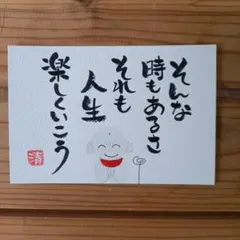 そんな
時もあるさ
それも
人生
楽しくいこう
清